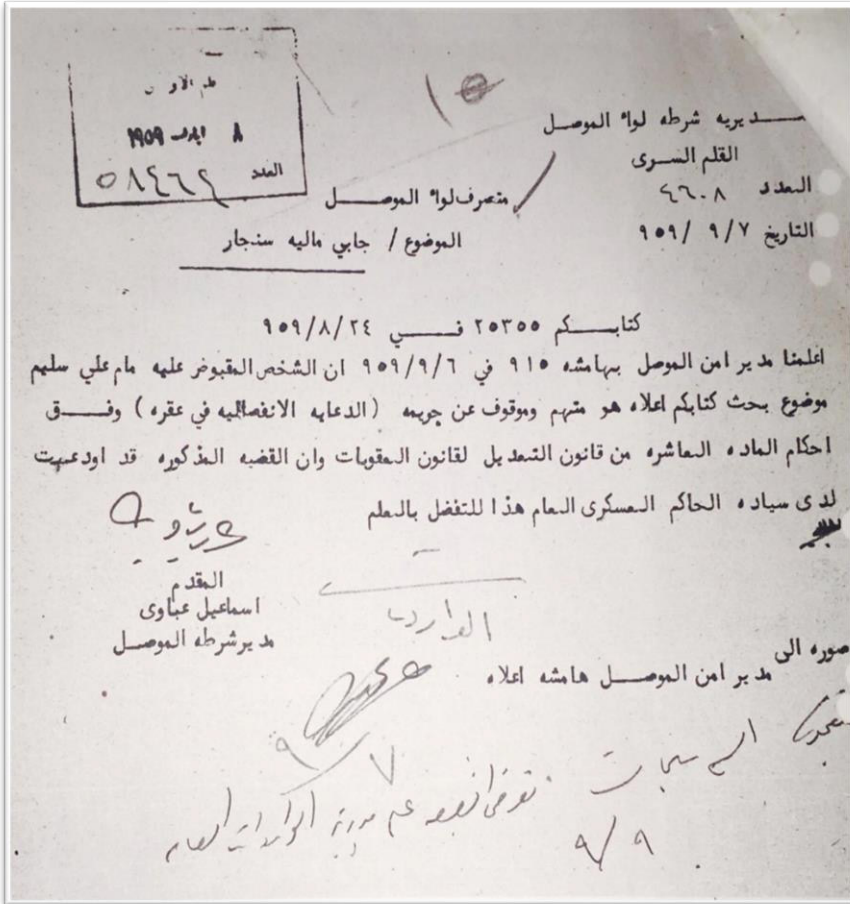 ٨ ايلول ١٩٥٩
العدد ٥٨٤٦٢
١٥
مديريه شرطه لواء الموصل
القلم السرى
العدد ٤٦٠٨
التاريخ ٩٥٩/٩/٧
متصرف لواء الموصل
الموضوع / جابي ماليه سنجار
كتابكم ٢٥٣٥٥ في ٩٥٩/٨/٢٤
اعلمنا مدير امن الموصل بهامشه ٩١٥ في ٩٥٩/٩/٦ ان الشخص المقبوض عليه مام علي سليم
موضوع بحث كتابكم اعلاه هو متهم وموقوف عن جريمه (الدعايه الانفصاليه في عقره) وفق
احكام الماده العاشره من قانون التعديل لقانون العقوبات وان القضيه المذكوره قد اودعت
لدى سياده الحاكم العسكرى العام هذا للتفضل بالعلم
المقدم
اسماعيل عباوى
مدير شرطه الموصل
الواردات
صوره الى
مدير امن الموصل هامشه اعلاه
٩/٧
٩/٩